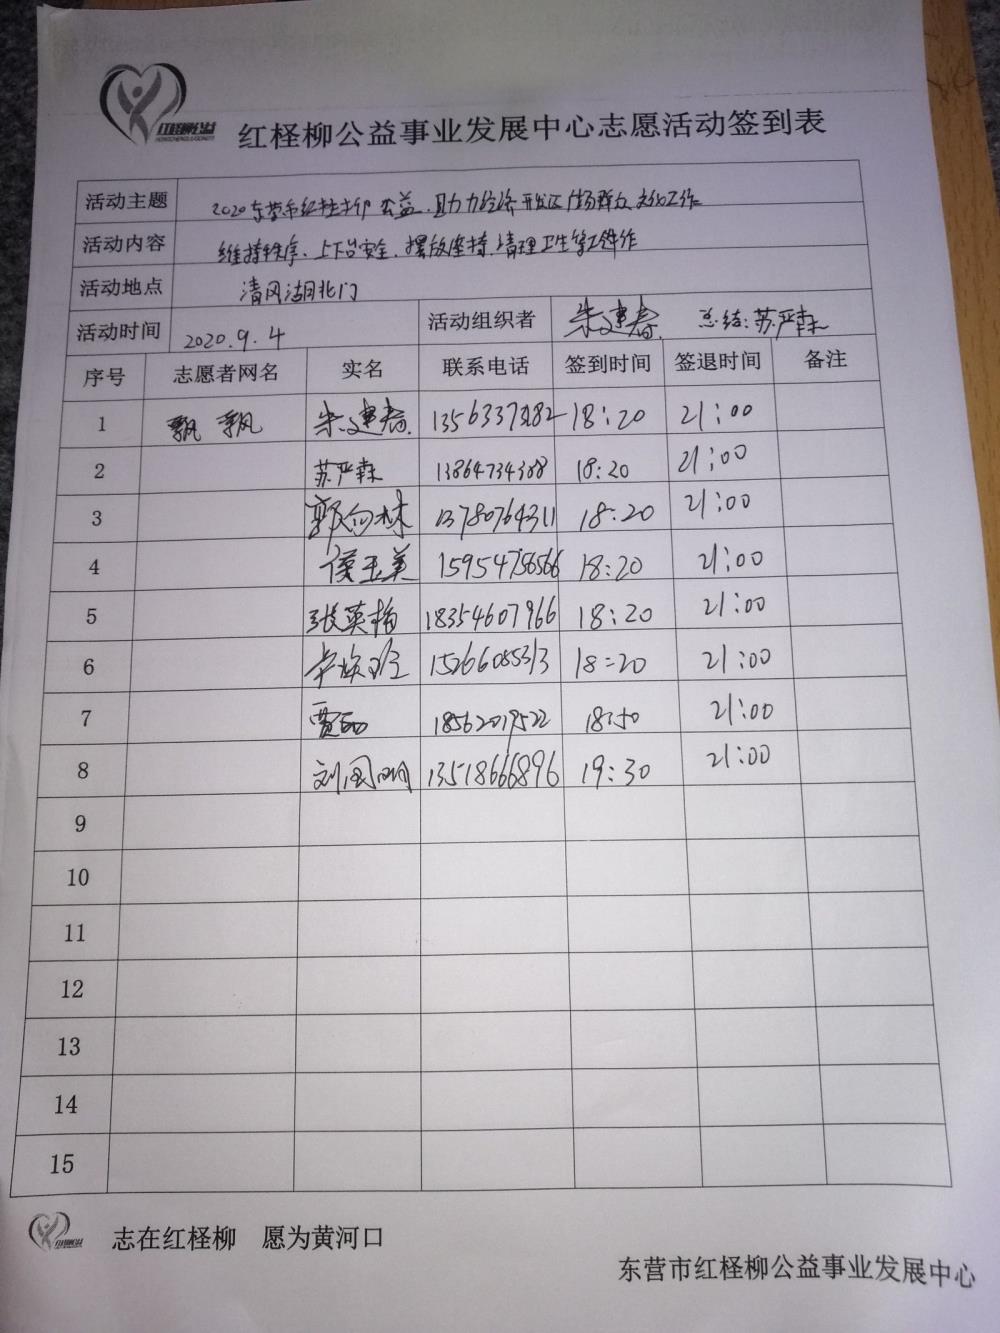 红柽柳公益
红柽柳公益事业发展中心志愿活动签到表
活动主题 2020东营市红柽柳公益,助力经济开发区广场群众文化工作
活动内容 维持秩序、上下台安全、摆放座椅、清理卫生等工作
活动地点 清风湖北门
活动时间 2020.9.4 活动组织者 朱建春 总结:苏严森
序号 志愿者网名 实名 联系电话 签到时间 签退时间 备注
1 飘飘 朱建春 18:20 21:00
2 苏严森 13864734388 18:20 21:00
3 郭向林 13780764311 18:20 21:00
4 侯玉美 15954756566 18:20 21:00
5 张英梅 18354607966 18:20 21:00
6 15266085313 18:20 21:00
7 18562019522 18:50 21:00
8 刘国明 13518666896 19:30 21:00
9
10
11
12
13
14
15
志在红柽柳 愿为黄河口
东营市红柽柳公益事业发展中心